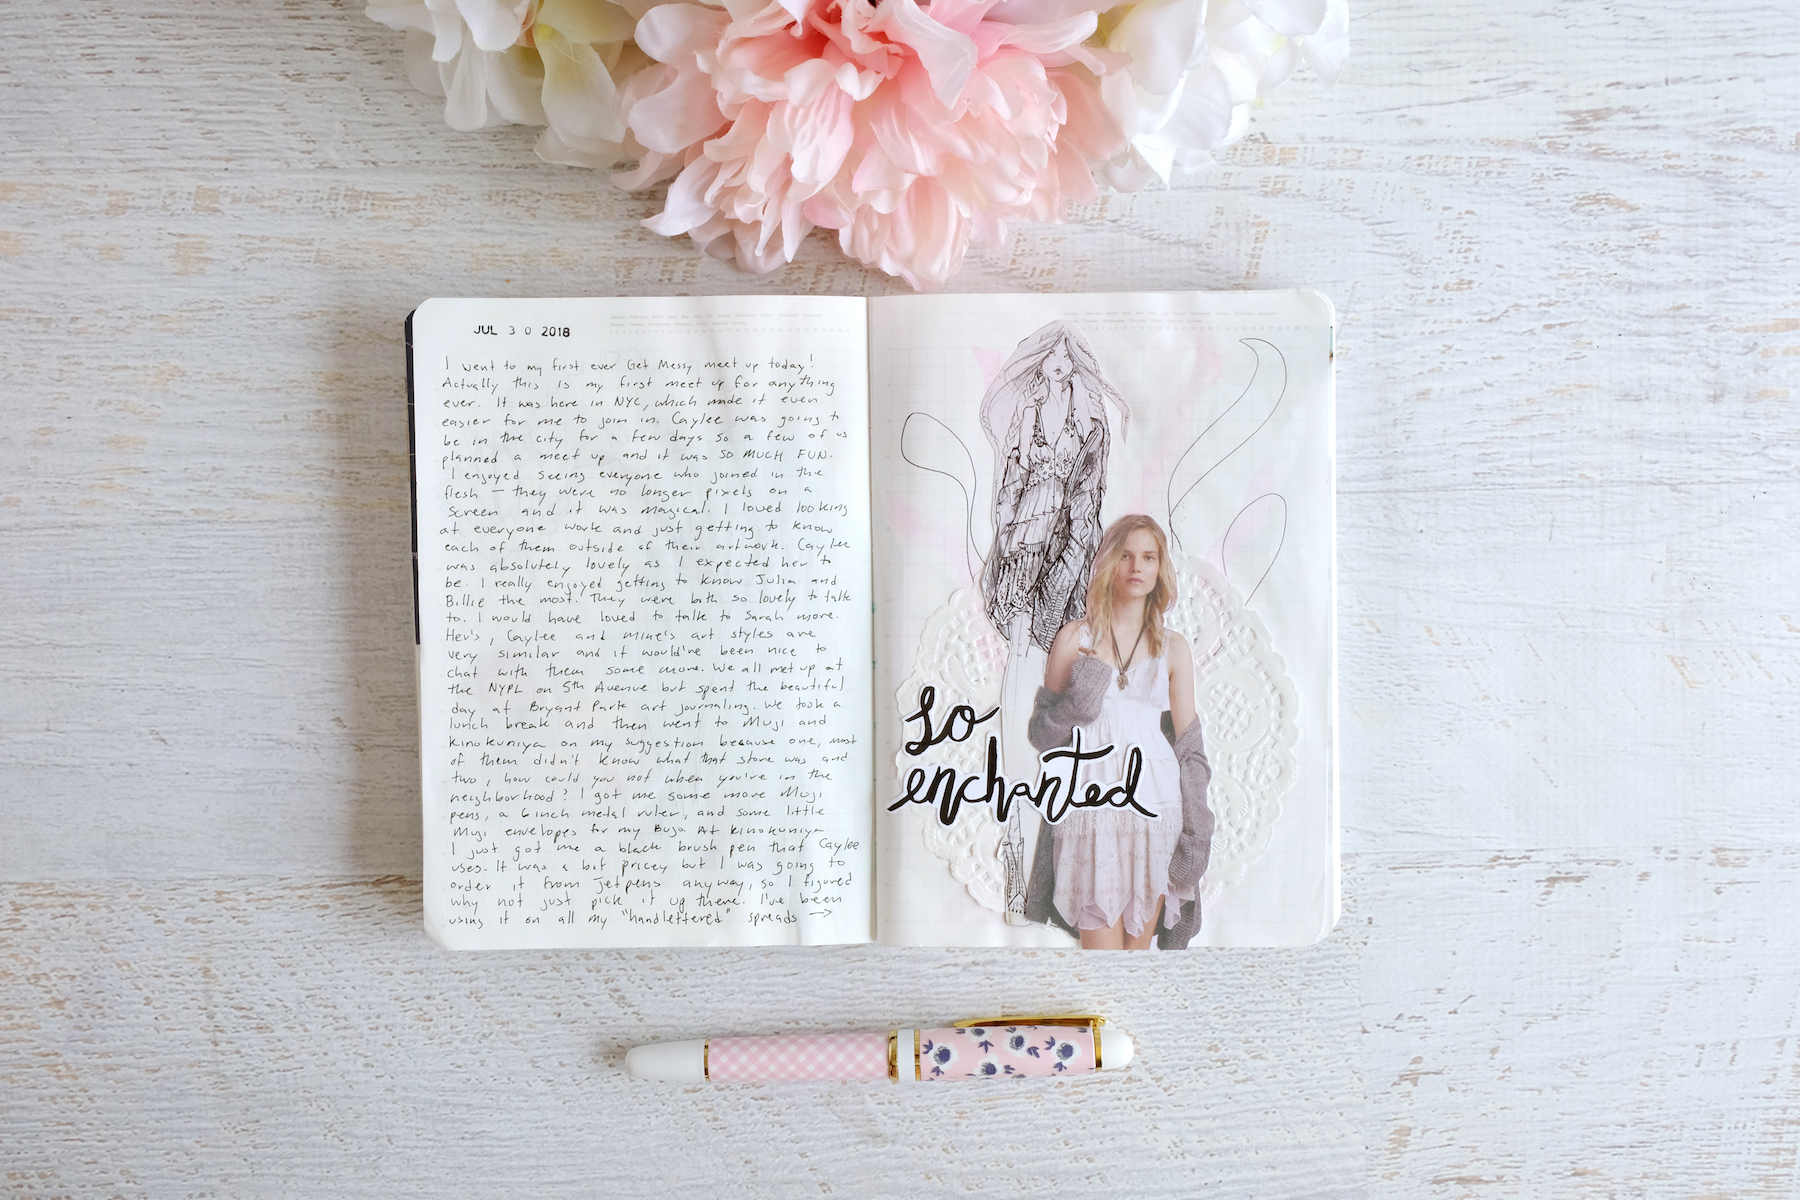 JUL 30 2018
I went to my first ever Get Messy meet up today!
Actually this is my first meet up for anything
ever. It was here in NYC, which made it even
easier for me to join in. Caylee was going to
be in the city for a few days so a few of us
planned a meet up and it was SO MUCH FUN.
I enjoyed seeing everyone who joined in the
flesh — they were no longer pixels on a
screen and it was magical. I loved looking
at everyone work and just getting to know
each of them outside of their artwork. Caylee
was absolutely lovely as I expected her to
be. I really enjoyed getting to know Julia and
Billie the most. They were both so lovely to talk
to. I would have loved to talk to Sarah more.
Her's, Caylee and mine's art styles are
very similar and it would've been nice to
chat with them some more. We all met up at
the NYPL on 5th Avenue but spent the beautiful
day at Bryant Park art journaling. We took a
lunch break and then went to Muji and
kinokuniya on my suggestion because one, most
of them didn't know what that store was and
two, how could you not when you're in the
neighborhood? I got me some more Muji
pens, a 6 inch metal ruler, and some little
Muji envelopes for my Bujo. At kinokuniya
I just got me a black brush pen that Caylee
uses. It was a bit pricey but I was going to
order it from Jetpens anyway, so I figured
why not just pick it up there. I've been
using it on all my "handlettered" spreads →
so
enchanted